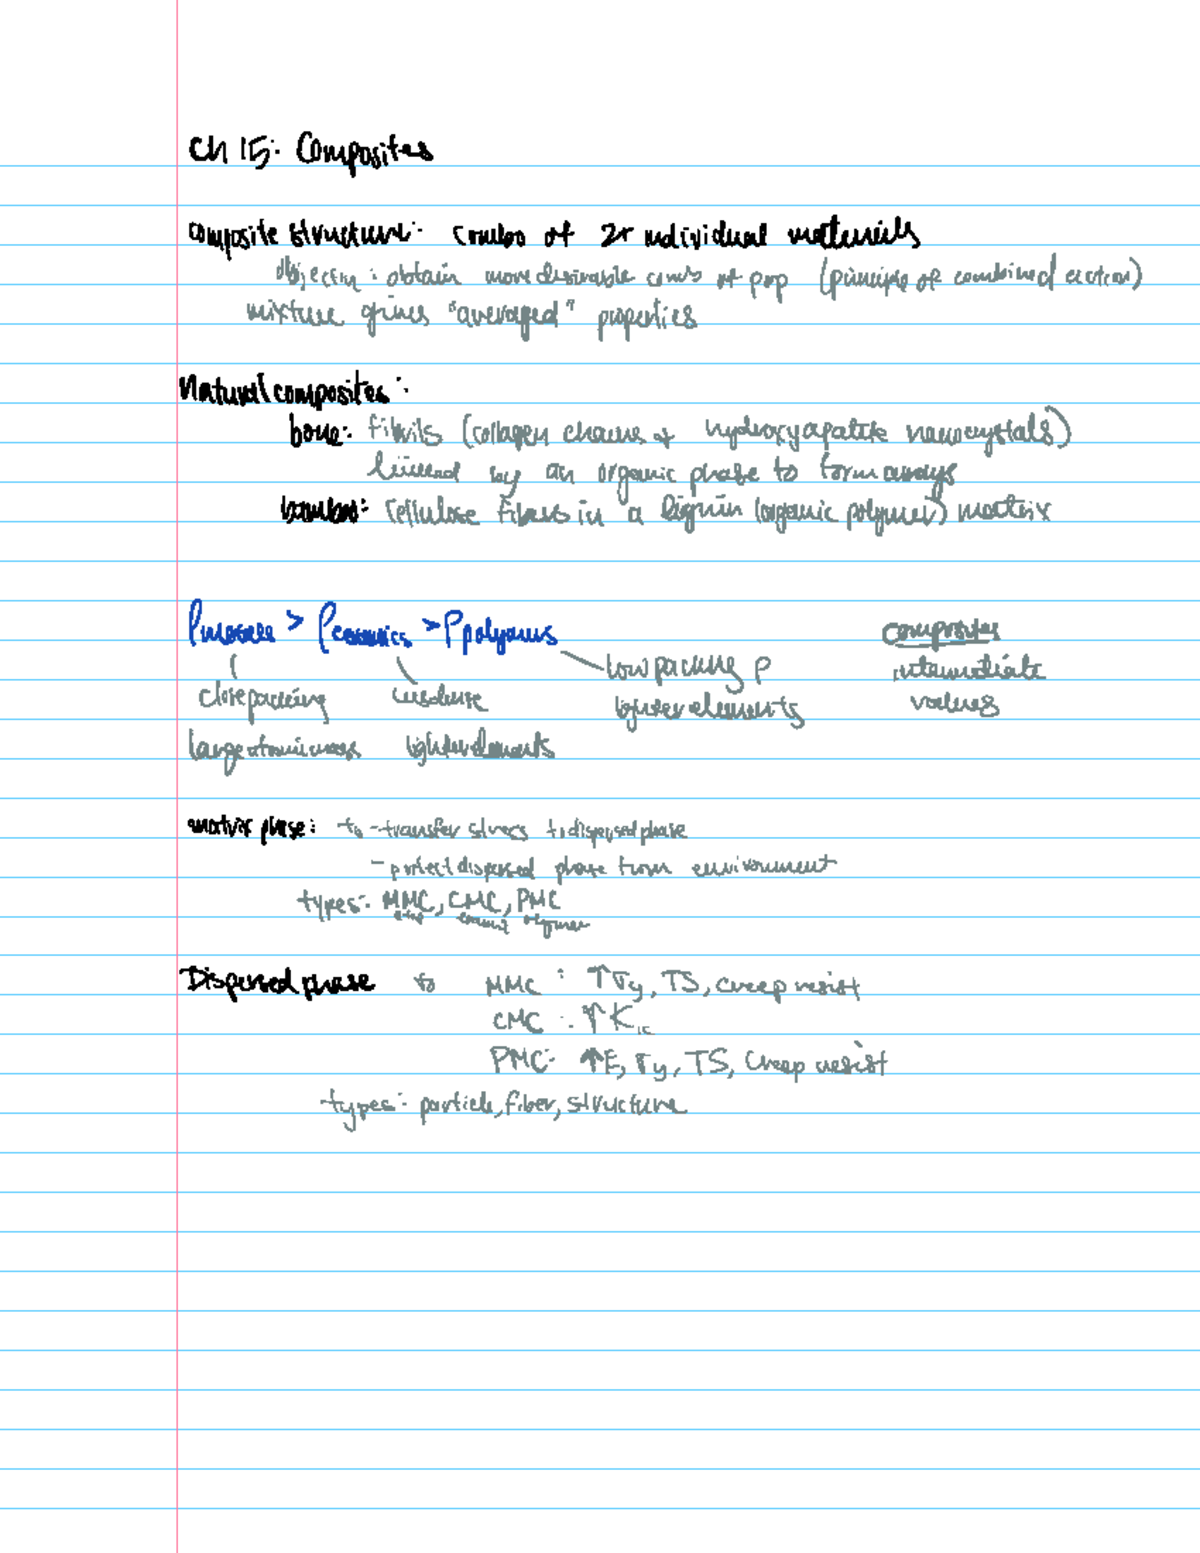 Ch 15: Composites
composite structure: combo of 2+ individual materials
objective: obtain more desirable combs of prop (principle of combined action)
mixture gives "averaged" properties
Natural composites:
bone: fibrils (collagen chains + hydroxyapatite nanocrystals)
linked by an organic phase to form arrays
bamboo: cellulose fibers in a lignin (organic polymer) matrix
ρmetals > ρceramics > ρpolymers
composites
close packing
less dense
low packing ρ
intermediate
large atomic mass
lighter elements
lighter elements
values
matrix phase: to - transfer stress to dispersed phase
- protect dispersed phase from environment
types: MMC, CMC, PMC
metal ceramic polymer
Dispersed phase to MMC: ↑σy, TS, creep resist
CMC: ↑K1c
PMC: ↑E, σy, TS, creep resist
types: particle, fiber, structure